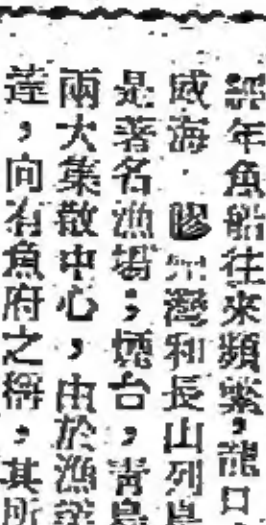 經年魚船往來頻繁,龍口
威海·膠州灣和長山列島
是著名漁場;煙台,青島
兩大集散中心,由於漁
蓬,向有魚府之稱,其所